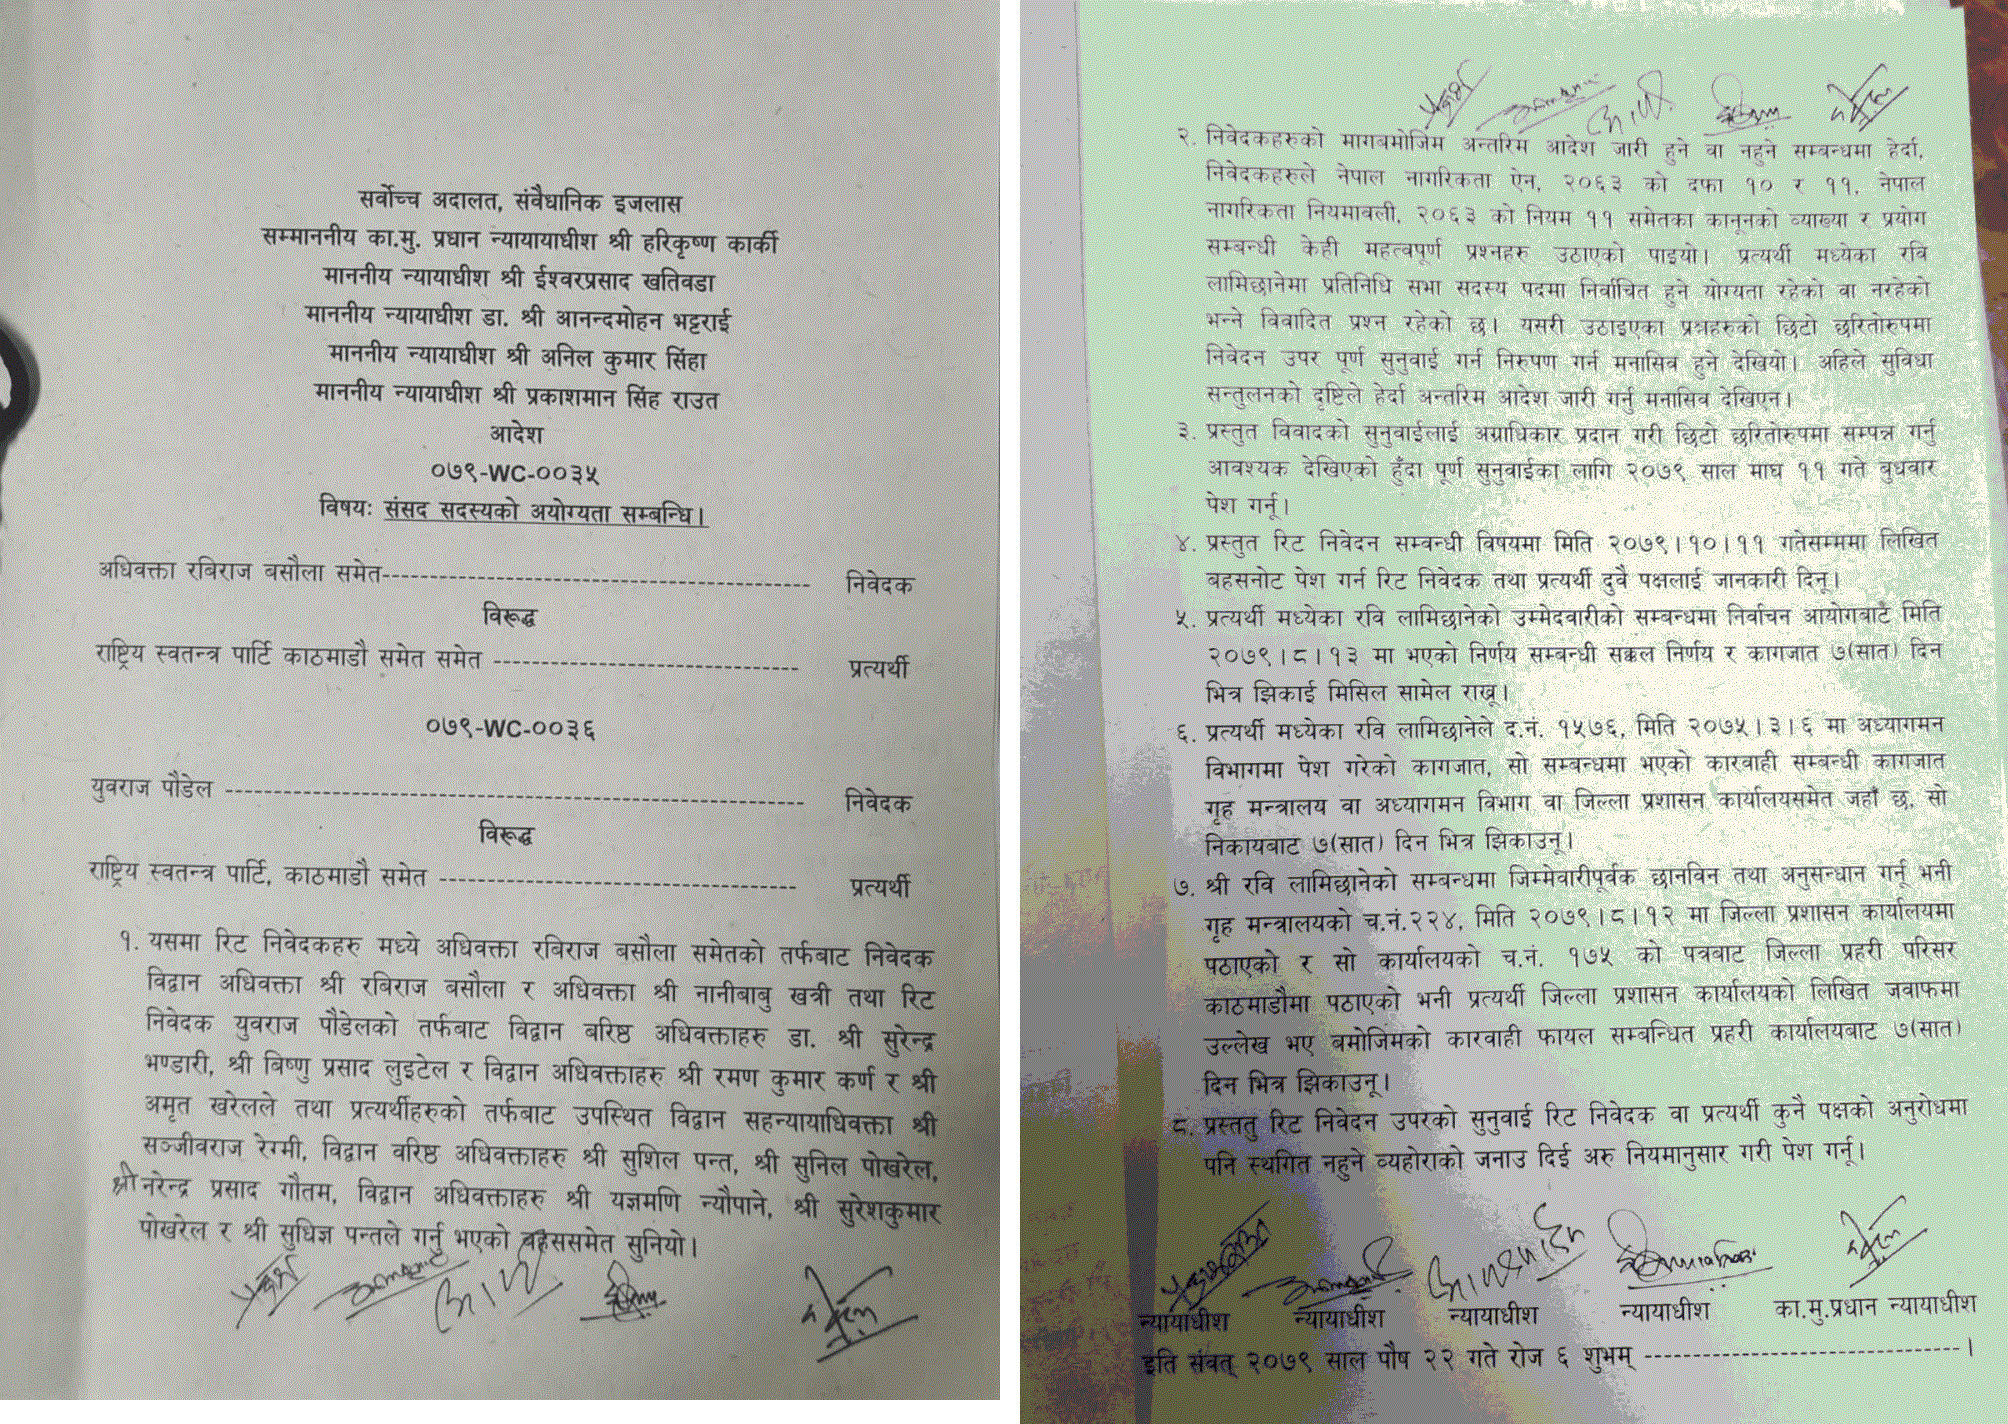 सर्वोच्च अदालत, संवैधानिक इजलास
सम्माननीय का.मु. प्रधान न्यायायाधीश श्री हरिकृष्ण कार्की
माननीय न्यायाधीश श्री ईश्वरप्रसाद खतिवडा
माननीय न्यायाधीश डा. श्री आनन्दमोहन भट्टराई
माननीय न्यायाधीश श्री अनिल कुमार सिंहा
माननीय न्यायाधीश श्री प्रकाशमान सिंह राउत
आदेश
०७९-WC-००३५
विषयः संसद सदस्यको अयोग्यता सम्बन्धि।
अधिवक्ता रबिराज बसौला समेत-------------------------------- निवेदक
विरूद्ध
राष्ट्रिय स्वतन्त्र पार्टि काठमाडौ समेत समेत ------------------------ प्रत्यर्थी
०७९-WC-००३६
युवराज पौडेल -------------------------------------------- निवेदक
विरूद्ध
राष्ट्रिय स्वतन्त्र पार्टि, काठमाडौ समेत ---------------------------- प्रत्यर्थी
१. यसमा रिट निवेदकहरु मध्ये अधिवक्ता रबिराज बसौला समेतको तर्फबाट निवेदक
विद्वान अधिवक्ता श्री रबिराज बसौला र अधिवक्ता श्री नानीबाबु खत्री तथा रिट
निवेदक युवराज पौडेलको तर्फबाट विद्वान बरिष्ठ अधिवक्ताहरु डा. श्री सुरेन्द्र
भण्डारी, श्री बिष्णु प्रसाद लुइटेल र विद्वान अधिवक्ताहरु श्री रमण कुमार कर्ण र श्री
अमृत खरेलले तथा प्रत्यर्थीहरुको तर्फबाट उपस्थित विद्वान सहन्यायाधिवक्ता श्री
सञ्जीवराज रेग्मी, विद्वान वरिष्ठ अधिवक्ताहरु श्री सुशिल पन्त, श्री सुनिल पोखरेल,
श्री नरेन्द्र प्रसाद गौतम, विद्वान अधिवक्ताहरु श्री यज्ञमणि न्यौपाने, श्री सुरेशकुमार
पोखरेल र श्री सुधिज्ञ पन्तले गर्नु भएको बहससमेत सुनियो।
२. निवेदकहरुको मागबमोजिम अन्तरिम आदेश जारी हुने वा नहुने सम्बन्धमा हेर्दा,
निवेदकहरुले नेपाल नागरिकता ऐन, २०६३ को दफा १० र ११, नेपाल
नागरिकता नियमावली, २०६३ को नियम ११ समेतका कानूनको व्याख्या र प्रयोग
सम्बन्धी केही महत्वपूर्ण प्रश्नहरु उठाएको पाइयो। प्रत्यर्थी मध्येका रवि
लामिछानेमा प्रतिनिधि सभा सदस्य पदमा निर्वाचित हुने योग्यता रहेको वा नरहेको
भन्ने विवादित प्रश्न रहेको छ। यसरी उठाइएका प्रश्नहरुको छिटो छरितोरुपमा
निवेदन उपर पूर्ण सुनुवाई गर्न निरुपण गर्न मनासिव हुने देखियो। अहिले सुविधा
सन्तुलनको दृष्टिले हेर्दा अन्तरिम आदेश जारी गर्नु मनासिव देखिएन।
३. प्रस्तुत विवादको सुनुवाईलाई अग्राधिकार प्रदान गरी छिटो छरितोरुपमा सम्पन्न गर्नु
आवश्यक देखिएको हुँदा पूर्ण सुनुवाईका लागि २०७९ साल माघ ११ गते बुधवार
पेश गर्नू।
४. प्रस्तुत रिट निवेदन सम्बन्धी विषयमा मिति २०७९।१०।११ गतेसम्ममा लिखित
बहसनोट पेश गर्न रिट निवेदक तथा प्रत्यर्थी दुवै पक्षलाई जानकारी दिनू।
५. प्रत्यर्थी मध्येका रवि लामिछानेको उम्मेदवारीको सम्बन्धमा निर्वाचन आयोगबाट मिति
२०७९।८।१३ मा भएको निर्णय सम्बन्धी सक्कल निर्णय र कागजात ७(सात) दिन
भित्र झिकाई मिसिल सामेल राख्नू।
६. प्रत्यर्थी मध्येका रवि लामिछानेले द.नं. १५७६, मिति २०७५।३।६ मा अध्यागमन
विभागमा पेश गरेको कागजात, सो सम्बन्धमा भएको कारवाही सम्बन्धी कागजात
गृह मन्त्रालय वा अध्यागमन विभाग वा जिल्ला प्रशासन कार्यालयसमेत जहाँ छ, सो
निकायबाट ७(सात) दिन भित्र झिकाउनू।
७. श्री रवि लामिछानेको सम्बन्धमा जिम्मेवारीपूर्वक छानविन तथा अनुसन्धान गर्नू भनी
गृह मन्त्रालयको च.नं.२२४, मिति २०७९।८।१२ मा जिल्ला प्रशासन कार्यालयमा
पठाएको र सो कार्यालयको च.नं. १७५ को पत्रबाट जिल्ला प्रहरी परिसर
काठमाडौमा पठाएको भनी प्रत्यर्थी जिल्ला प्रशासन कार्यालयको लिखित जवाफमा
उल्लेख भए बमोजिमको कारवाही फायल सम्बन्धित प्रहरी कार्यालयबाट ७(सात)
दिन भित्र झिकाउनू।
८. प्रस्ततु रिट निवेदन उपरको सुनुवाई रिट निवेदक वा प्रत्यर्थी कुनै पक्षको अनुरोधमा
पनि स्थगित नहुने व्यहोराको जनाउ दिई अरु नियमानुसार गरी पेश गर्नू।
न्यायाधीश न्यायाधीश न्यायाधीश न्यायाधीश का.मु.प्रधान न्यायाधीश
इति संवत् २०७९ साल पौष २२ गते रोज ६ शुभम् --------------------------।